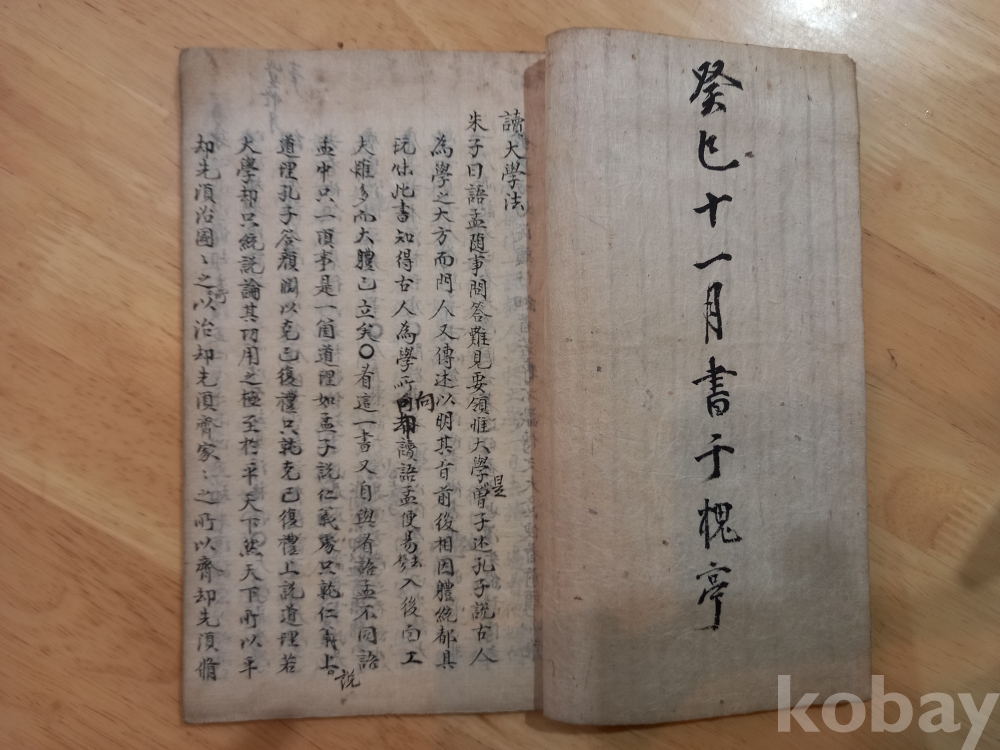 癸巳十一月書于槐亭
讀大學法
朱子曰語孟隨事問答難見要領惟大學是曾子述孔子說古人
為學之大方而門人又傳述以明其旨前後相因體統都具
玩味此書知得古人為學所向却讀語孟便易入後面工
夫雖多而大體已立矣○看這一書又自與看語孟不同語
孟中只一項事是一箇道理如孟子說仁義處只就仁義上說
道理孔子答顏淵以克己復禮只就克己復禮上說道理若
大學却只統說論其功用之極至於平天下然天下所以平
却先須治國〻之所以治却先須齊家〻之所以齊却先須脩
kobay